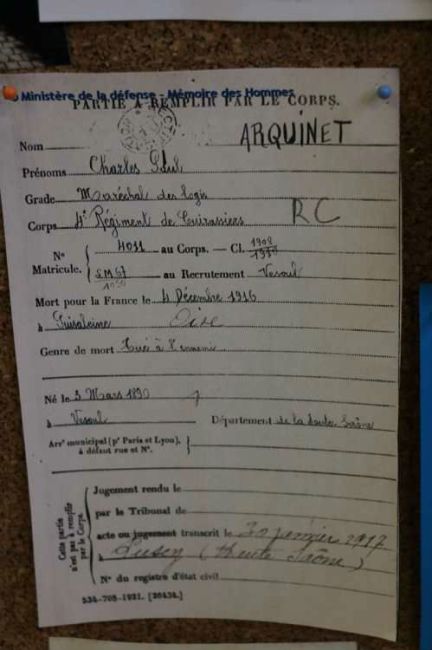 Ministère de la défense - Mémoire des Hommes
PARTIE A REMPLIR PAR LE CORPS.
Nom ARQUINET
Prénoms Charles Paul
Grade Maréchal des logis
Corps 4e Régiment de Cuirassiers RC
Nº 4011 au Corps. — Cl. 1908
Matricule. au Recrutement Vesoul
Mort pour la France le 4 Décembre 1916
à Puisaleine Oise
Genre de mort Tué à l'ennemi
Né le 3 Mars 1890
à Vesoul Département de la Haute Saône
Arrt municipal (pr Paris et Lyon),
à défaut rue et Nº.
Cette partie
n'est pas à remplir
par le Corps.
Jugement rendu le
par le Tribunal de
acte ou jugement transcrit le 30 janvier 1917
à (Haute Saône)
Nº du registre d'état civil
534-708-1921. [26434.]